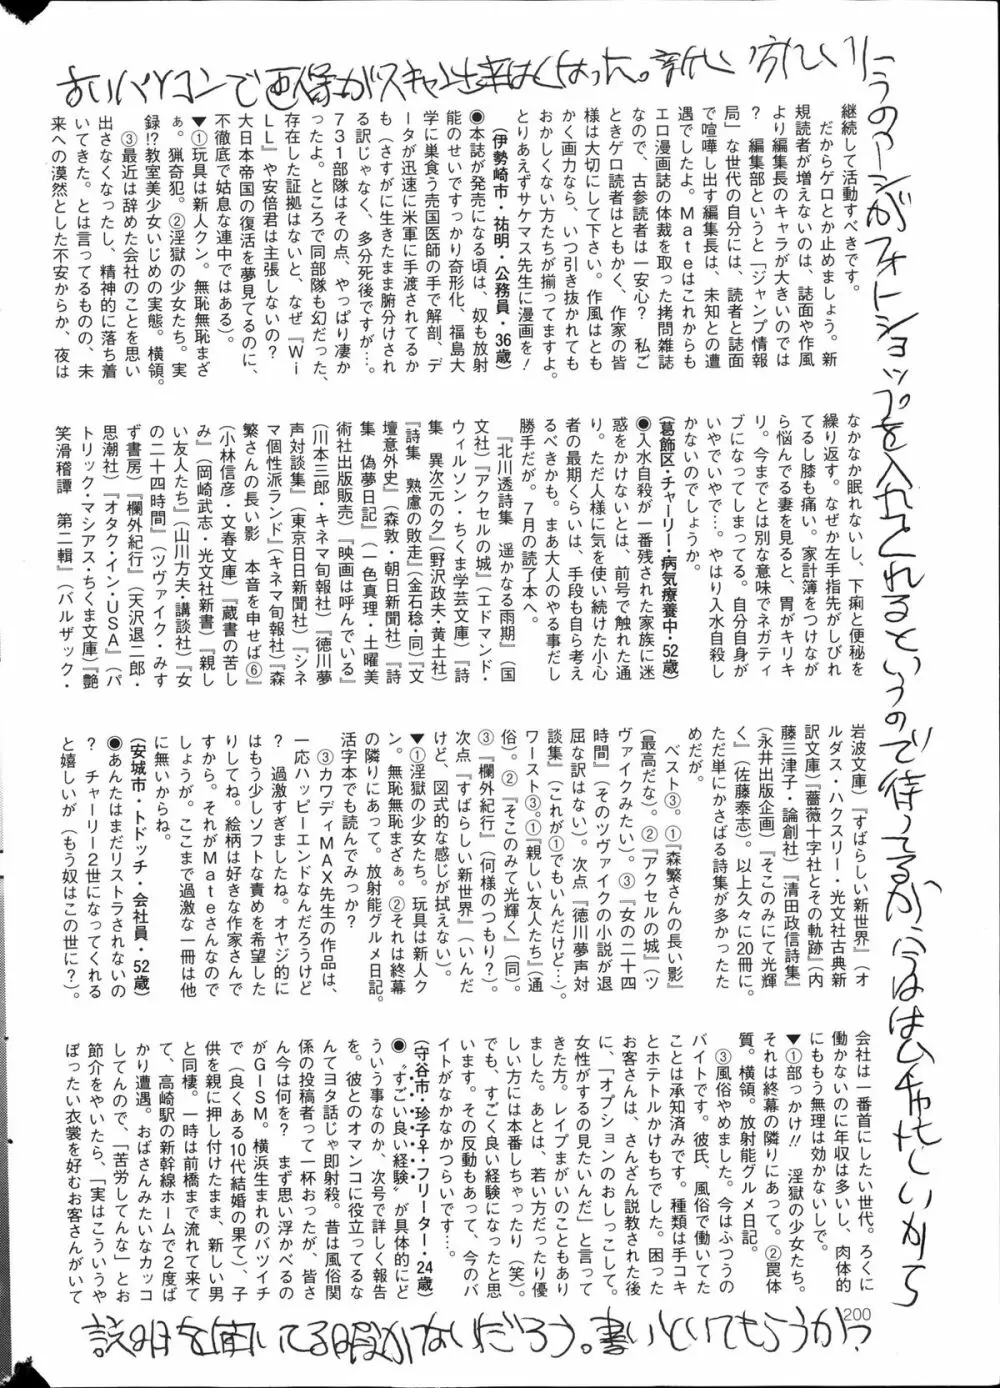 古いパソコンで画像がスキャン出来なくなった。新しい方にいれ
うのマージがフォトショップを入れてくれるというので待ってるが、今はいそがしいから
継続して活動すべきです。
だからゲロとか止めましょう。新
規読者が増えないのは、誌面や作風
より編集長のキャラが大きいのでは
? 編集部というと「ジャンプ情報
局」な世代の自分には、読者と誌面
で喧嘩し出す編集長は、未知との遭
遇でしたよ。Mateはこれからも
エロ漫画誌の体裁を取った拷問雑誌
なので、古参読者は一安心? 私ご
ときゲロ読者はともかく、作家の皆
様は大切にして下さい。作風はとも
かく画力なら、いつ引き抜かれても
おかしくない方たちが揃ってますよ。
とりあえずサケマス先生に漫画を!
(伊勢崎市・祐明・公務員・36歳)
●本誌が発売になる頃は、奴も放射
能のせいですっかり奇形化、福島大
学に巣食う売国医師の手で解剖、デ
ータが迅速に米軍に手渡されてるか
も(さすがに生きたまま腑分けされ
る訳じゃなく、多分死後ですが…。
731部隊はその点、やっぱり凄か
ったよ。ところで同部隊も幻だった、
存在した証拠はないと、なぜ『Wi
LL』や安倍君は主張しないの?
大日本帝国の復活を夢見てるのに、
不徹底で姑息な連中ではある)。
▼①玩具は新人クン。無恥無恥まざ
ぁ。猟奇犯。②淫獄の少女たち。実
録!?教室美少女いじめの実態。横領。
③最近は辞めた会社のことを思い
出さなくなったし、精神的に落ち着
いてきた。とは言ってるものの、未
来への漠然とした不安からか、夜は
なかなか眠れないし、下痢と便秘を
繰り返す。なぜか左手指先がしびれ
てるし膝も痛い。家計簿をつけなが
ら悩んでる妻を見ると、胃がキリキ
リ。今までとは別な意味でネガティ
ブになってしまってる。自分自身が
いやでいやで…。やはり入水自殺し
かないのでしょうか。
(葛飾区・チャーリー・病気療養中・52歳)
●入水自殺が一番残された家族に迷
惑をかけないとは、前号で触れた通
り。ただ人様に気を使い続けた小心
者の最期くらいは、手段も自ら考え
るべきかも。まあ大人のやる事だし
勝手だが。7月の読了本へ。
『北川透詩集 遥かなる雨期』(国
文社)『アクセルの城』(エドマンド・
ウィルソン・ちくま学芸文庫)『詩
集 異次元の夕』(野沢政夫・黄土社)
『詩集 熟慮の敗走』(金石稔・同)『文
壇意外史』(森敦・朝日新聞社)『詩
集 偽夢日記』(一色真理・土曜美
術社出版販売)『映画は呼んでいる』
(川本三郎・キネマ旬報社)『徳川夢
声対談集』(東京日日新聞社)『シネ
マ個性派ランド』(キネマ旬報社)『森
繁さんの長い影 本音を申せば⑥』
(小林信彦・文春文庫)『蔵書の苦し
み』(岡崎武志・光文社新書)『親し
い友人たち』(山川方夫・講談社)『女
の二十四時間』(ツヴァイク・みす
ず書房)『欄外紀行』(天沢退二郎・
思潮社)『オタク・イン・USA』(パ
トリック・マシアス・ちくま文庫)『艶
笑滑稽譚 第二輯』(バルザック・
岩波文庫)『すばらしい新世界』(オ
ルダス・ハクスリー・光文社古典新
訳文庫)『薔薇十字社とその軌跡』(内
藤三津子・論創社)『清田政信詩集』
(永井出版企画)『そこのみにて光輝
く』(佐藤泰志)。以上久々に20冊に。
ただ単にかさばる詩集が多かったた
めだが。
ベスト③。①『森繁さんの長い影』
(最高だな)。②『アクセルの城』(ツ
ヴァイクみたい)。③『女の二十四
時間』(そのツヴァイクの小説が退
屈な訳はない)。次点『徳川夢声対
談集』(これが①でもいんだけど…)。
ワースト③。①『親しい友人たち』(通
俗)。②『そこのみて光輝く』(同)。
③『欄外紀行』(何様のつもり?)。
次点『すばらしい新世界』(いんだ
けど、図式的な感じが拭えない)。
▼①淫獄の少女たち。玩具は新人ク
ン。無恥無恥まざぁ。②それは終幕
の隣りにあって。放射能グルメ日記。
活字本でも読んでみっか?
③カワディMAX先生の作品は、
一応ハッピーエンドなんだろうけど
? 過激すぎましたね。オヤジ的に
はもう少しソフトな責めを希望した
りしてね。絵柄は好きな作家さんで
すから。それがMateさんなので
しょうが。ここまで過激な一冊は他
に無いからね。
(安城市・トドッチ・会社員・52歳)
●あんたはまだリストラされないの
? チャーリー2世になってくれる
と嬉しいが(もう奴はこの世に?)。
会社は一番首にしたい世代。ろくに
働かないのに年収は多いし、肉体的
にももう無理は効かないしで。
▼①部っかけ!! 淫獄の少女たち。
それは終幕の隣りにあって。②罠体
質。横領。放射能グルメ日記。
③風俗やめました。今はふつうの
バイトです。彼氏、風俗で働いてた
ことは承知済みです。種類は手コキ
とホテトルかけもちでした。困った
お客さんは、さんざん説教された後
に、「オプションのおしっこして。
女性がするの見たいんだ」と言って
きた方。レイプまがいのこともあり
ました。あとは、若い方だったり優
しい方には本番しちゃったり(笑)。
でも、すごく良い経験になったと思
います。その反動もあって、今のバ
イトがなかなかつらいです…。
(守谷市・珍子♀・フリーター・24歳)
●“すごい良い経験”が具体的にど
ういう事なのか、次号で詳しく報告
を。彼とのオマンコに役立ってるな
んてヨタ話じゃ即射殺。昔は風俗関
係の投稿者って一杯おったが、皆さ
ん今は何を? まず思い浮かべるの
がGISM。横浜生まれのバツイチ
で(良くある10代結婚の果て)、子
供を親に押し付けたまま、新しい男
と同棲。一時は前橋まで流れて来て
て、高崎駅の新幹線ホームで2度ば
かり遭遇。おばさんみたいなカッコ
してんので、「苦労してんな」とお
節介をやいたら、「実はこういうや
ぼったい衣裳を好むお客さんがいて
200
説明を聞いてる暇がないだろう。書いといてもらうか?